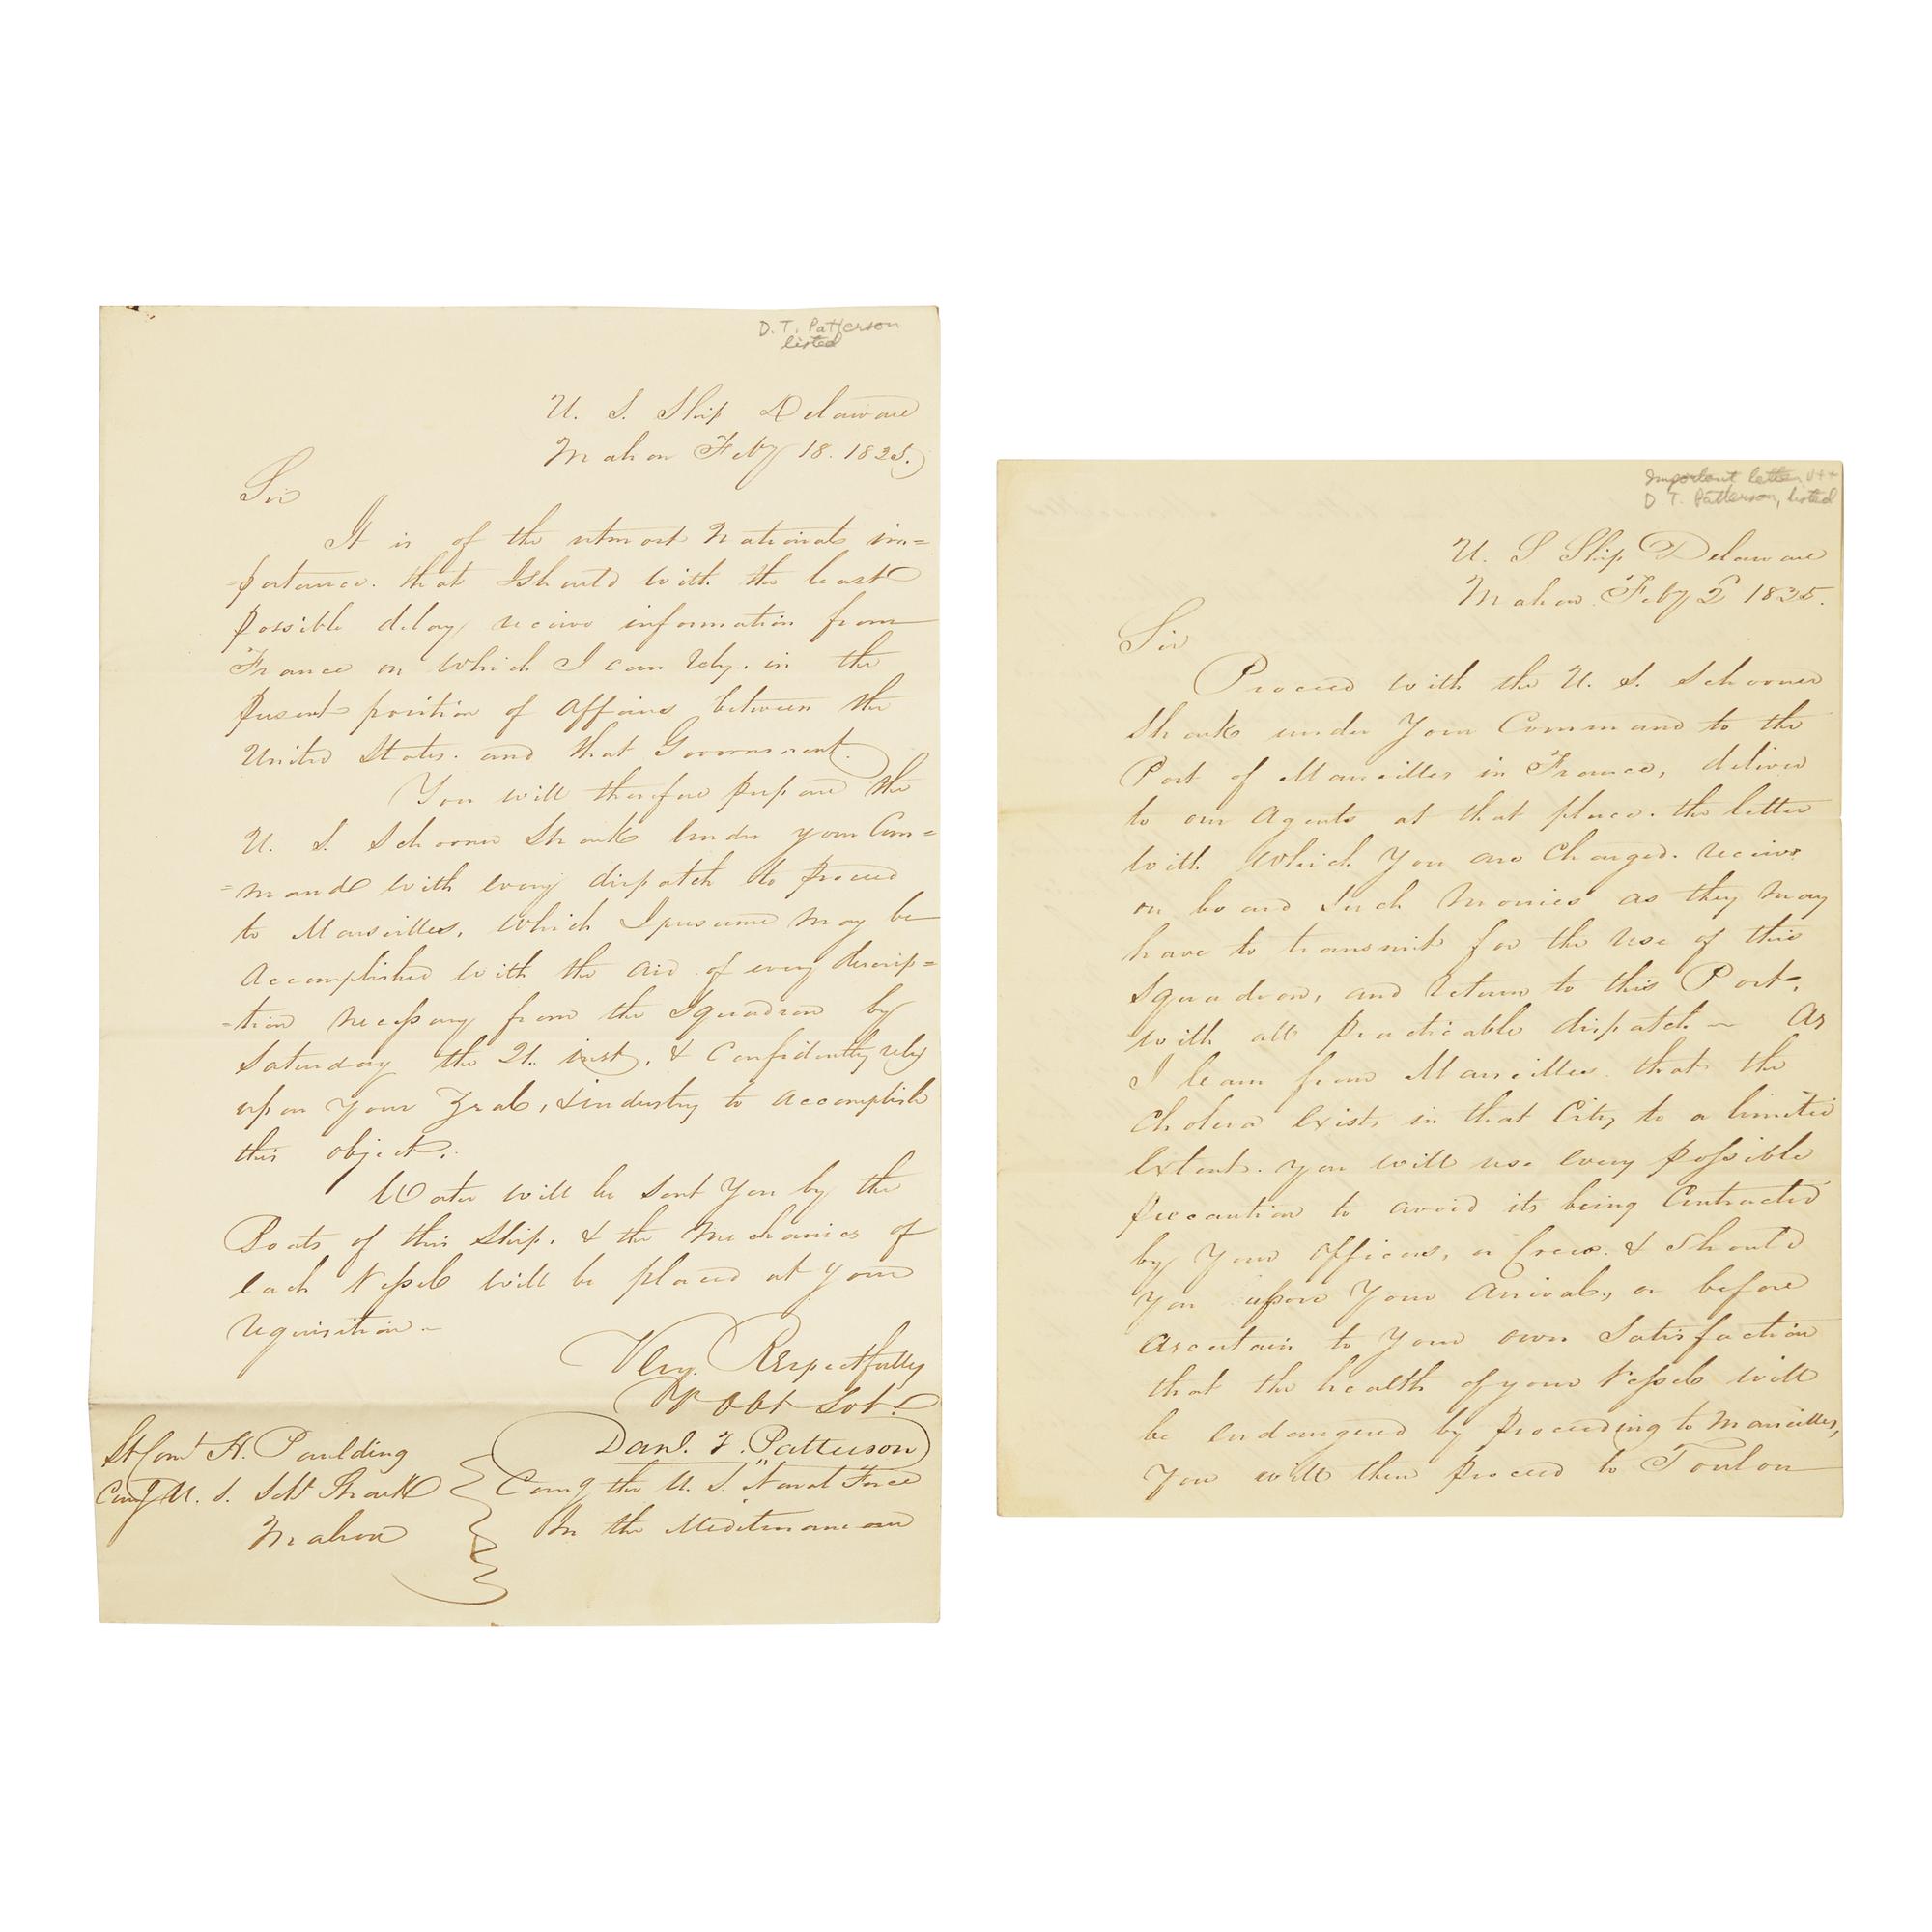 D. T. Patterson
listed
U. S. Ship Delaware
Mahon Feby 18. 1835.
Sir
It is of the utmost National im=
=portance. that I should with the least
possible delay receive information from
France on which I can rely. in the
present position of Affairs between the
United States. and that Government.
You will therefore prepare the
U. S. Schooner Shark under your Com=
=mand with every dispatch to proceed
to Marseilles, which I presume may be
accomplished with the aid of every descrip=
=tion necessary from the Squadron by
Saturday the 21. inst, & confidently rely
upon your Zeal, & industry to accomplish
this object.
Water will be sent you by the
Boats of this Ship. & the Mechanics of
each Vessel will be placed at your
requisition ~
Very Respectfully
Yr Obt Svt.
Danl. T. Patterson
Comg the U. S. Naval Force
In the Mediterranean
Lt Comt H. Paulding
Comg U. S. Schr Shark
Mahon
Important letter
D T. Patterson, listed
U. S Ship Delaware
Mahon Feby 1835.
Sir
Proceed with the U. S. Schooner
Shark under your Command to the
Port of Marseilles in France, deliver
to our Agents at that place. the letter
with which you are charged. receive
on board such monies as they may
have to transmit for the use of this
Squadron, and return to this Port,
with all practicable dispatch ~ As
I learn from Marseilles. that the
cholera exists in that City to a limited
extent. you will use every possible
precaution to avoid its being contracted
by your officers, or Crew. & should
you upon your arrival, or before
ascertain to your own satisfaction
that the health of your Vessel will
be endangered by proceeding to Marseilles,
you will then proceed to Toulon